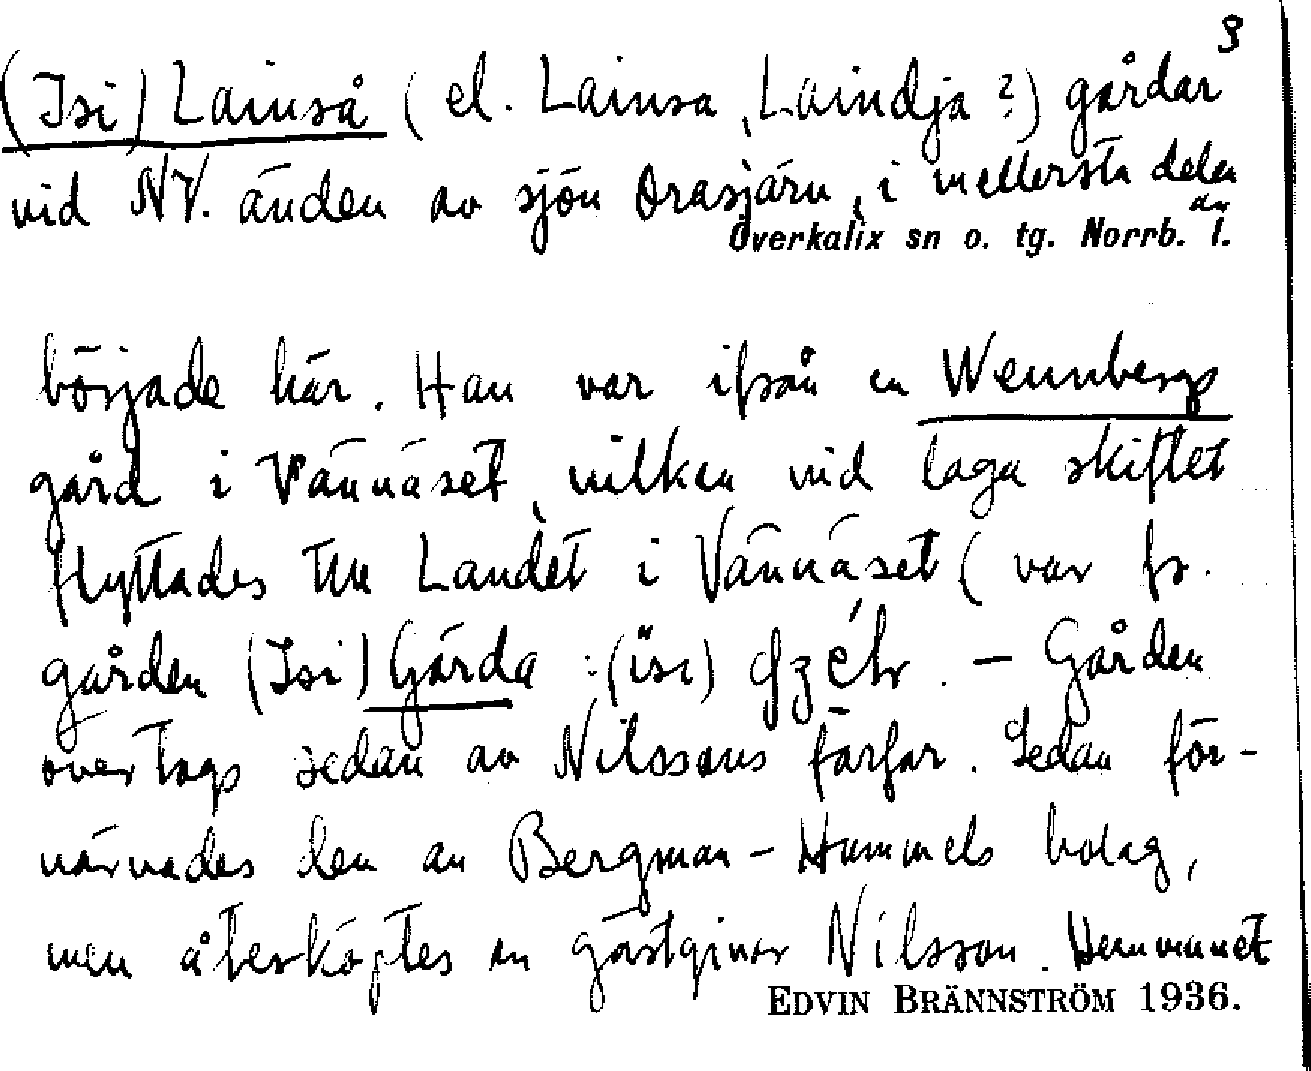 3
(Isi) Lainså (el. Lainsa, Laindja?) gårdar
vid NV. änden av sjön Orasjärv, i mellersta delen
av
Överkalix sn o. tg. Norrb. l.
började här. Han var ifrån en Wennbergs
gård i Vännäset, vilken vid laga skiftet
flyttades till Landet i Vännäset (var fr.
gården (Isi) Gärda : (isi) . – Gården
övertogs sedan av Nilssons farfar. Sedan för-
värvades den av Bergman – Hummels bolag,
men återköptes av gästgivar Nilsson. Hemmanet
EDVIN BRÄNNSTRÖM 1936.